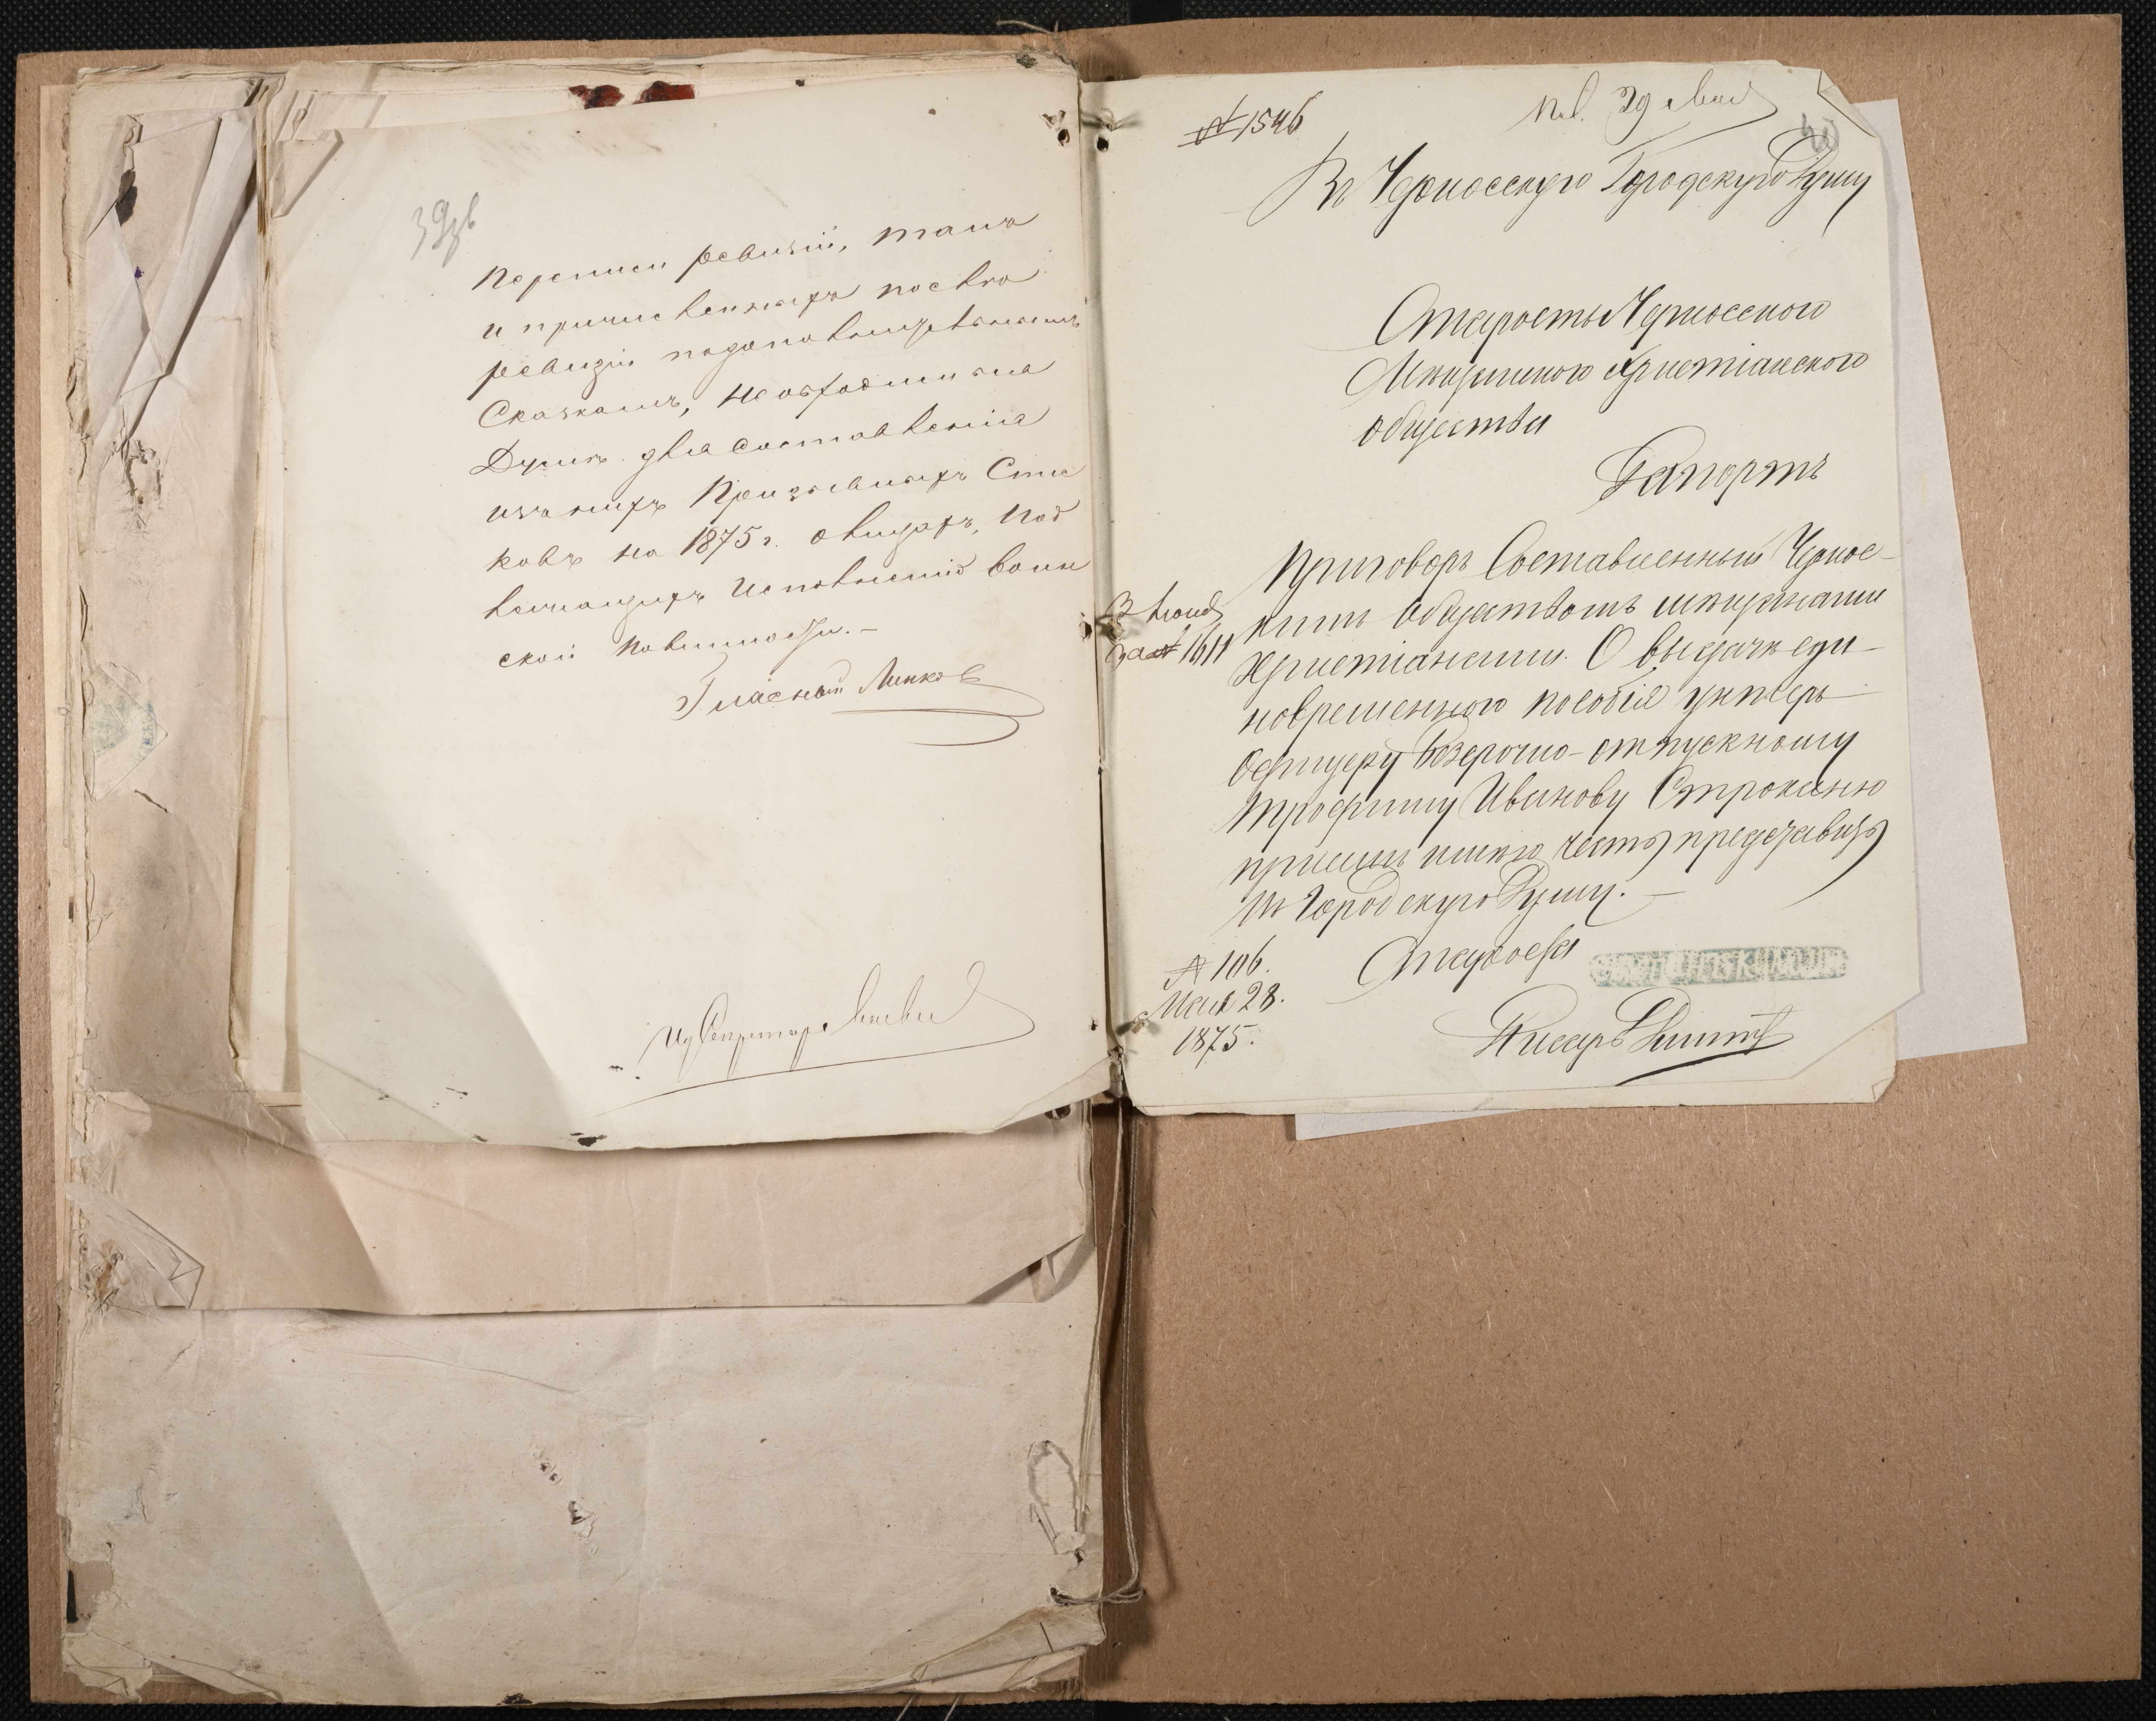 39зв
переписи ревизіи, такъ
и причисленныхъ после
ревизіи подополнительнымъ
Сказкамъ, необходимыя
Думе для составленія
изънихъ Призывныхъ Спис
ковъ на 1875 г. о лицахъ, под
лежащихъ исполненію воин
ской повинности. —
Гласный Линков
Ид Секретаря
№ 1546
пол. 29 мая
40
Въ Черкасскую Городскую Думу
Старосты Черкасского
Мѣщанского Христіанского
общества
Рапортъ
Приговоръ Составленный Черкас-
кимъ Обществомъ мѣщанами
Христіанами. О выдачѣ еди-
новременного пособія унтеръ
Офицеру безсрочно-отпускному
Трофиму Иванову Строканю
присемъ имѣю честь представить
въ Городскую Думу. —
за № 1611
Староста
№ 106.
Мая 28.
1875.
Писарь